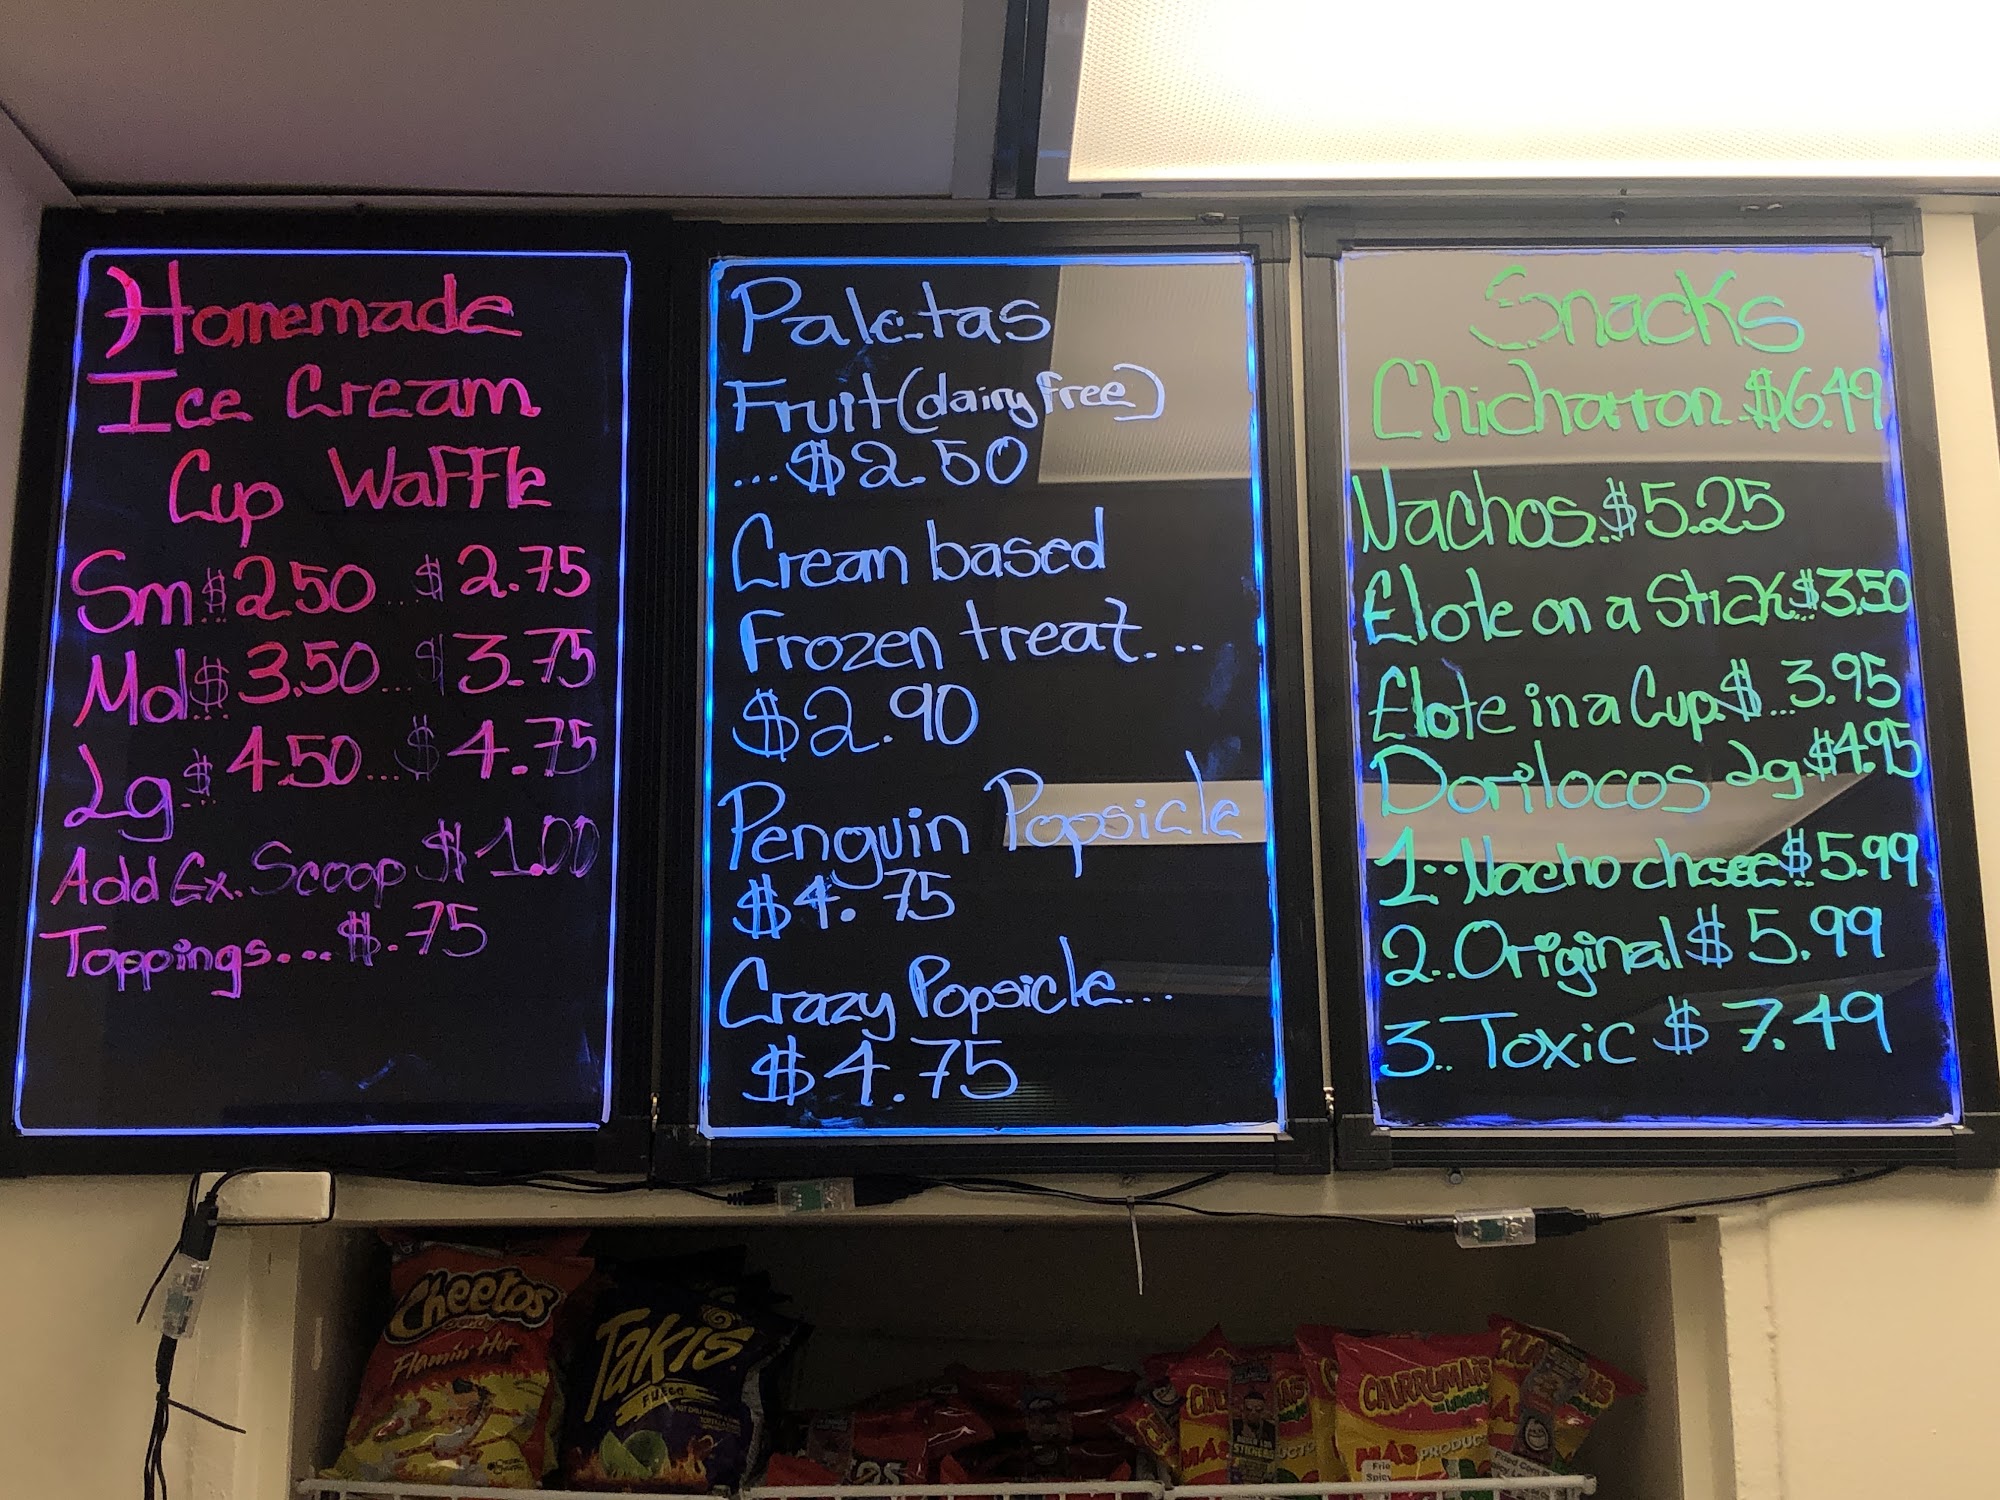 Homemade
Ice Cream
Cup Waffle
Sm $2.50... $2.75
Md $3.50... $3.75
Lg $4.50... $4.75
Add Ex. Scoop $1.00
Toppings... $.75
Paletas
Fruit (dairy free)
...$2.50
Cream based
Frozen treat...
$2.90
Penguin Popsicle
$4.75
Crazy Popsicle...
$4.75
Snacks
Chicharron $6.49
Nachos..$5.25
Elote on a Stick $3.50
Elote in a Cup $...3.95
Dorilocos Lg. $4.95
1..Nacho cheese $5.99
2..Original $5.99
3..Toxic $7.49
Cheetos
Flamin' Hot
Takis
FUEGO
CHURRUMAIS
MÁS PRODUC
MÁS